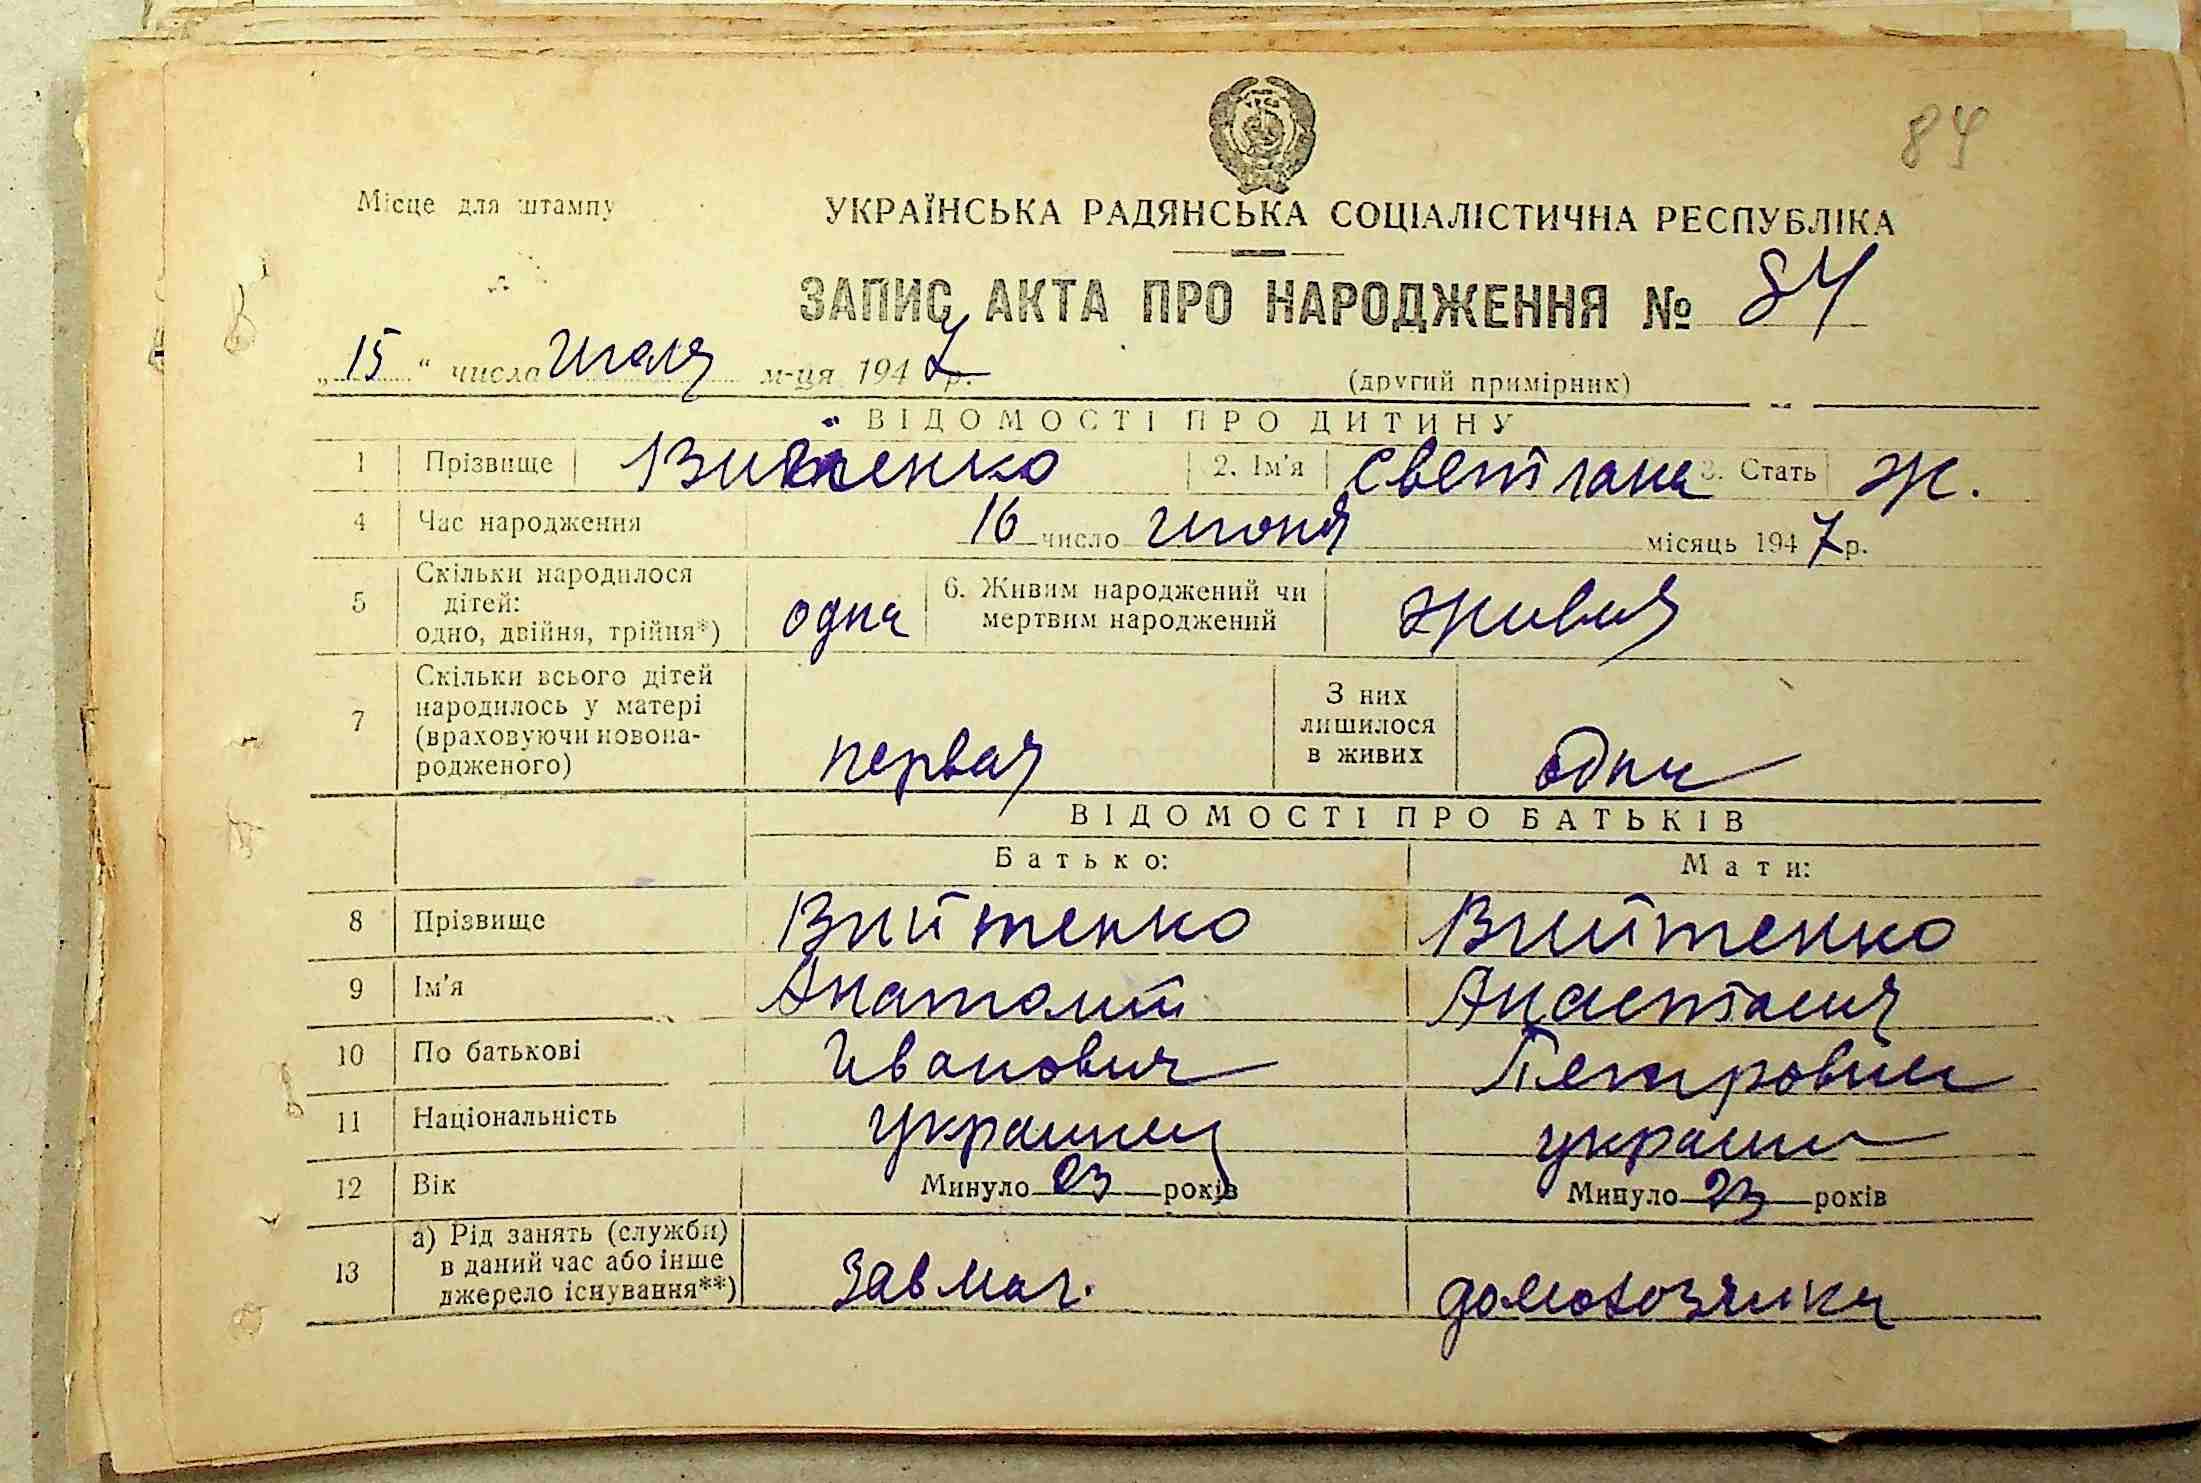 84
Місце для штампу
УКРАЇНСЬКА РАДЯНСЬКА СОЦІАЛІСТИЧНА РЕСПУБЛІКА
ЗАПИС АКТА ПРО НАРОДЖЕННЯ № 84
„15“ числа июля м-ця 1947 р.
(другий примірник)
ВІДОМОСТІ ПРО ДИТИНУ
1 Прізвище Вийтенко 2. Ім'я Светлана 3. Стать Ж.
4 Час народження 16 число июня місяць 1947 р.
5 Скільки народилося дітей: одно, двійня, трійня*) одна 6. Живим народжений чи мертвим народжений живая
7 Скільки всього дітей народилось у матері (враховуючи новона-родженого) первая З них лишилося в живих одна
ВІДОМОСТІ ПРО БАТЬКІВ
Батько: Мати:
8 Прізвище Вийтенко Вийтенко
9 Ім'я Анатолий Анастасия
10 По батькові Иванович Петровна
11 Національність украинец украин
12 Вік Минуло 23 років Минуло 23 років
13 а) Рід занять (служби) в даний час або інше джерело існування**) Завмаг. домохозяйка